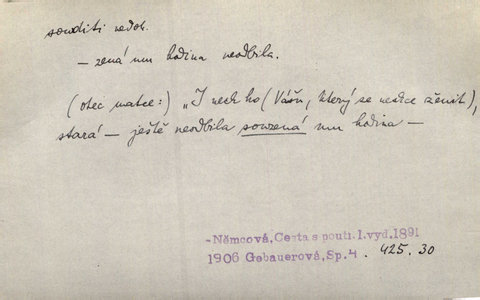 souditi nedok.
– zená mu hodina neodbila.
(otec matce:) „I nech ho (Vášu, který se nechce ženit),
stará – ještě neodbila souzená mu hodina –
-Němcová, Cesta s pouti. I.vyd.1891
1906 Gebauerová, Sp.4. 425.30